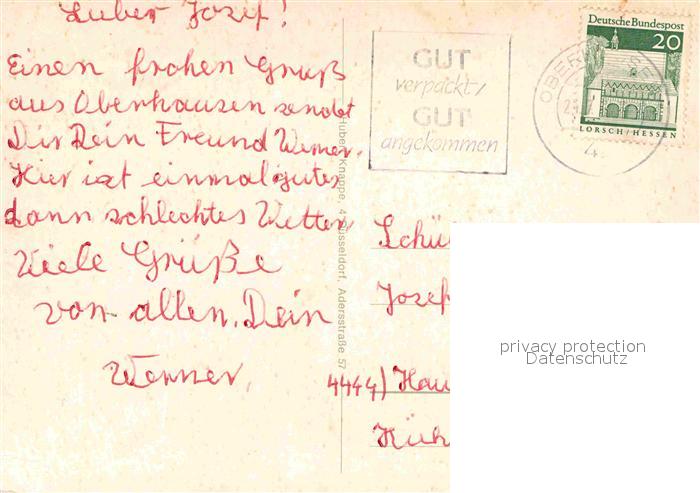 Lieber Josef!
Einen frohen Gruß
aus Oberhausen sendet
Dir Dein Freund Werner.
Hier ist einmal gutes
dann schlechtes Wetter
Viele Grüße
von allen. Dein
Werner.
Hubert Knappe, 4 Düsseldorf, Adersstraße 57
GUT
verpackt/
GUT
angekommen
OBERHAUSEN
4
Deutsche Bundespost
20
LORSCH/HESSEN
Schü
Josef
4444) Hau
Küh
privacy protection
Datenschutz